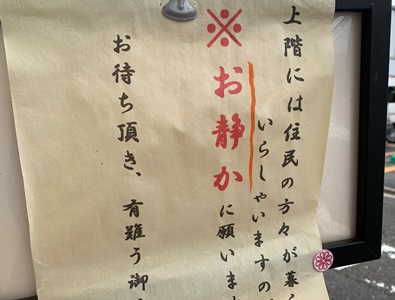 上階には住民の方々が暮
いらしゃいますの
※お静かに願いま
お待ち頂き、有難う御